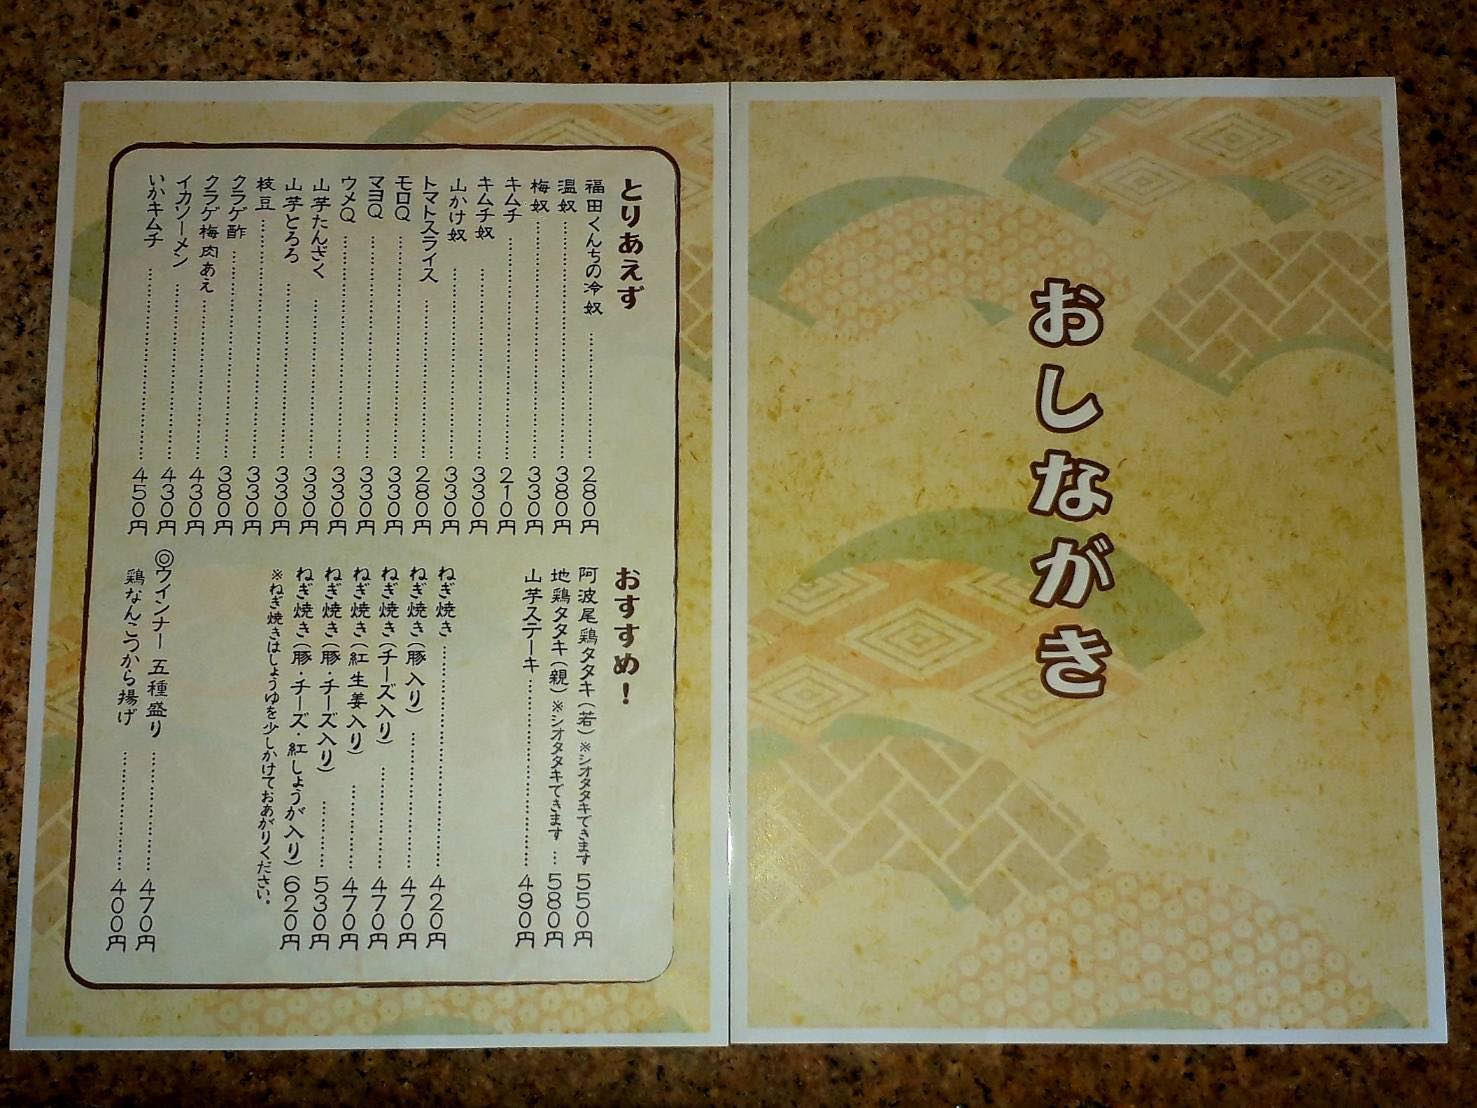 おしながき
とりあえず
福田くんちの冷奴 280円
温奴 380円
梅奴 330円
キムチ 210円
キムチ奴 330円
山かけ奴 330円
トマトスライス 280円
モロQ 330円
マヨQ 330円
ウメQ 330円
山芋たんざく 330円
山芋とろろ 330円
枝豆 330円
クラゲ酢 380円
クラゲ梅肉あえ 430円
イカソーメン 430円
いかキムチ 450円
おすすめ！
阿波尾鶏タタキ（若）※シオタタキできます 550円
地鶏タタキ（親）※シオタタキできます … 580円
山芋ステーキ 490円
ねぎ焼き 420円
ねぎ焼き（豚入り） 470円
ねぎ焼き（チーズ入り） 470円
ねぎ焼き（紅生姜入り） 470円
ねぎ焼き（豚・チーズ入り） 530円
ねぎ焼き（豚・チーズ・紅しょうが入り）620円
※ねぎ焼きはしょうゆを少しかけておあがりください。
◎ウインナー 五種盛り 470円
鶏なんこつから揚げ 400円